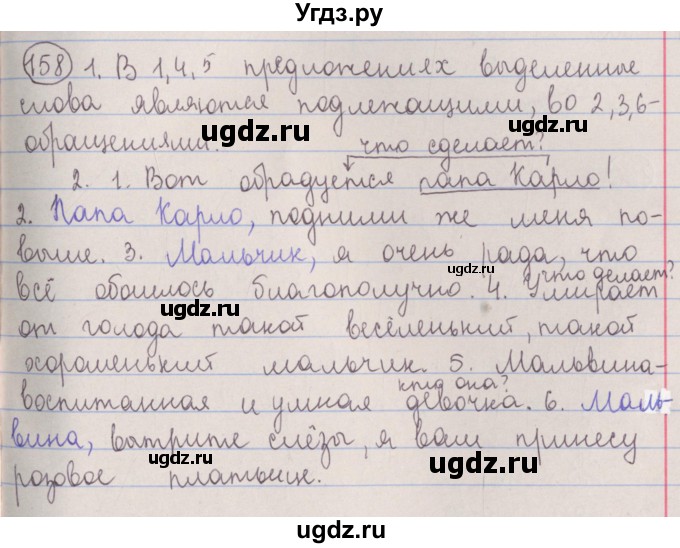 Угдз.ру
158 1. В 1,4,5 предложениях выделенные
слова являются подлежащими, во 2,3,6-
обращениями. что сделает?
2. 1. Вот обрадуется папа Карло!
2. Папа Карло, подними же меня по-
выше. 3. Мальчик, я очень рада, что
что делает?
всё обошлось благополучно. 4. Умирает
от голода такой весёленький, такой
хорошенький мальчик. 5. Мальвина-
кто она?
воспитанная и умная девочка. 6. Маль-
вина, вытрите слёзы, я вам принесу
розовое платьице.
ugdz.ru
ugdz.ru
ugdz.ru
ugdz.ru
ugdz.ru
ugdz.ru
ugdz.ru
ugdz.ru
ugdz.ru
ugdz.ru